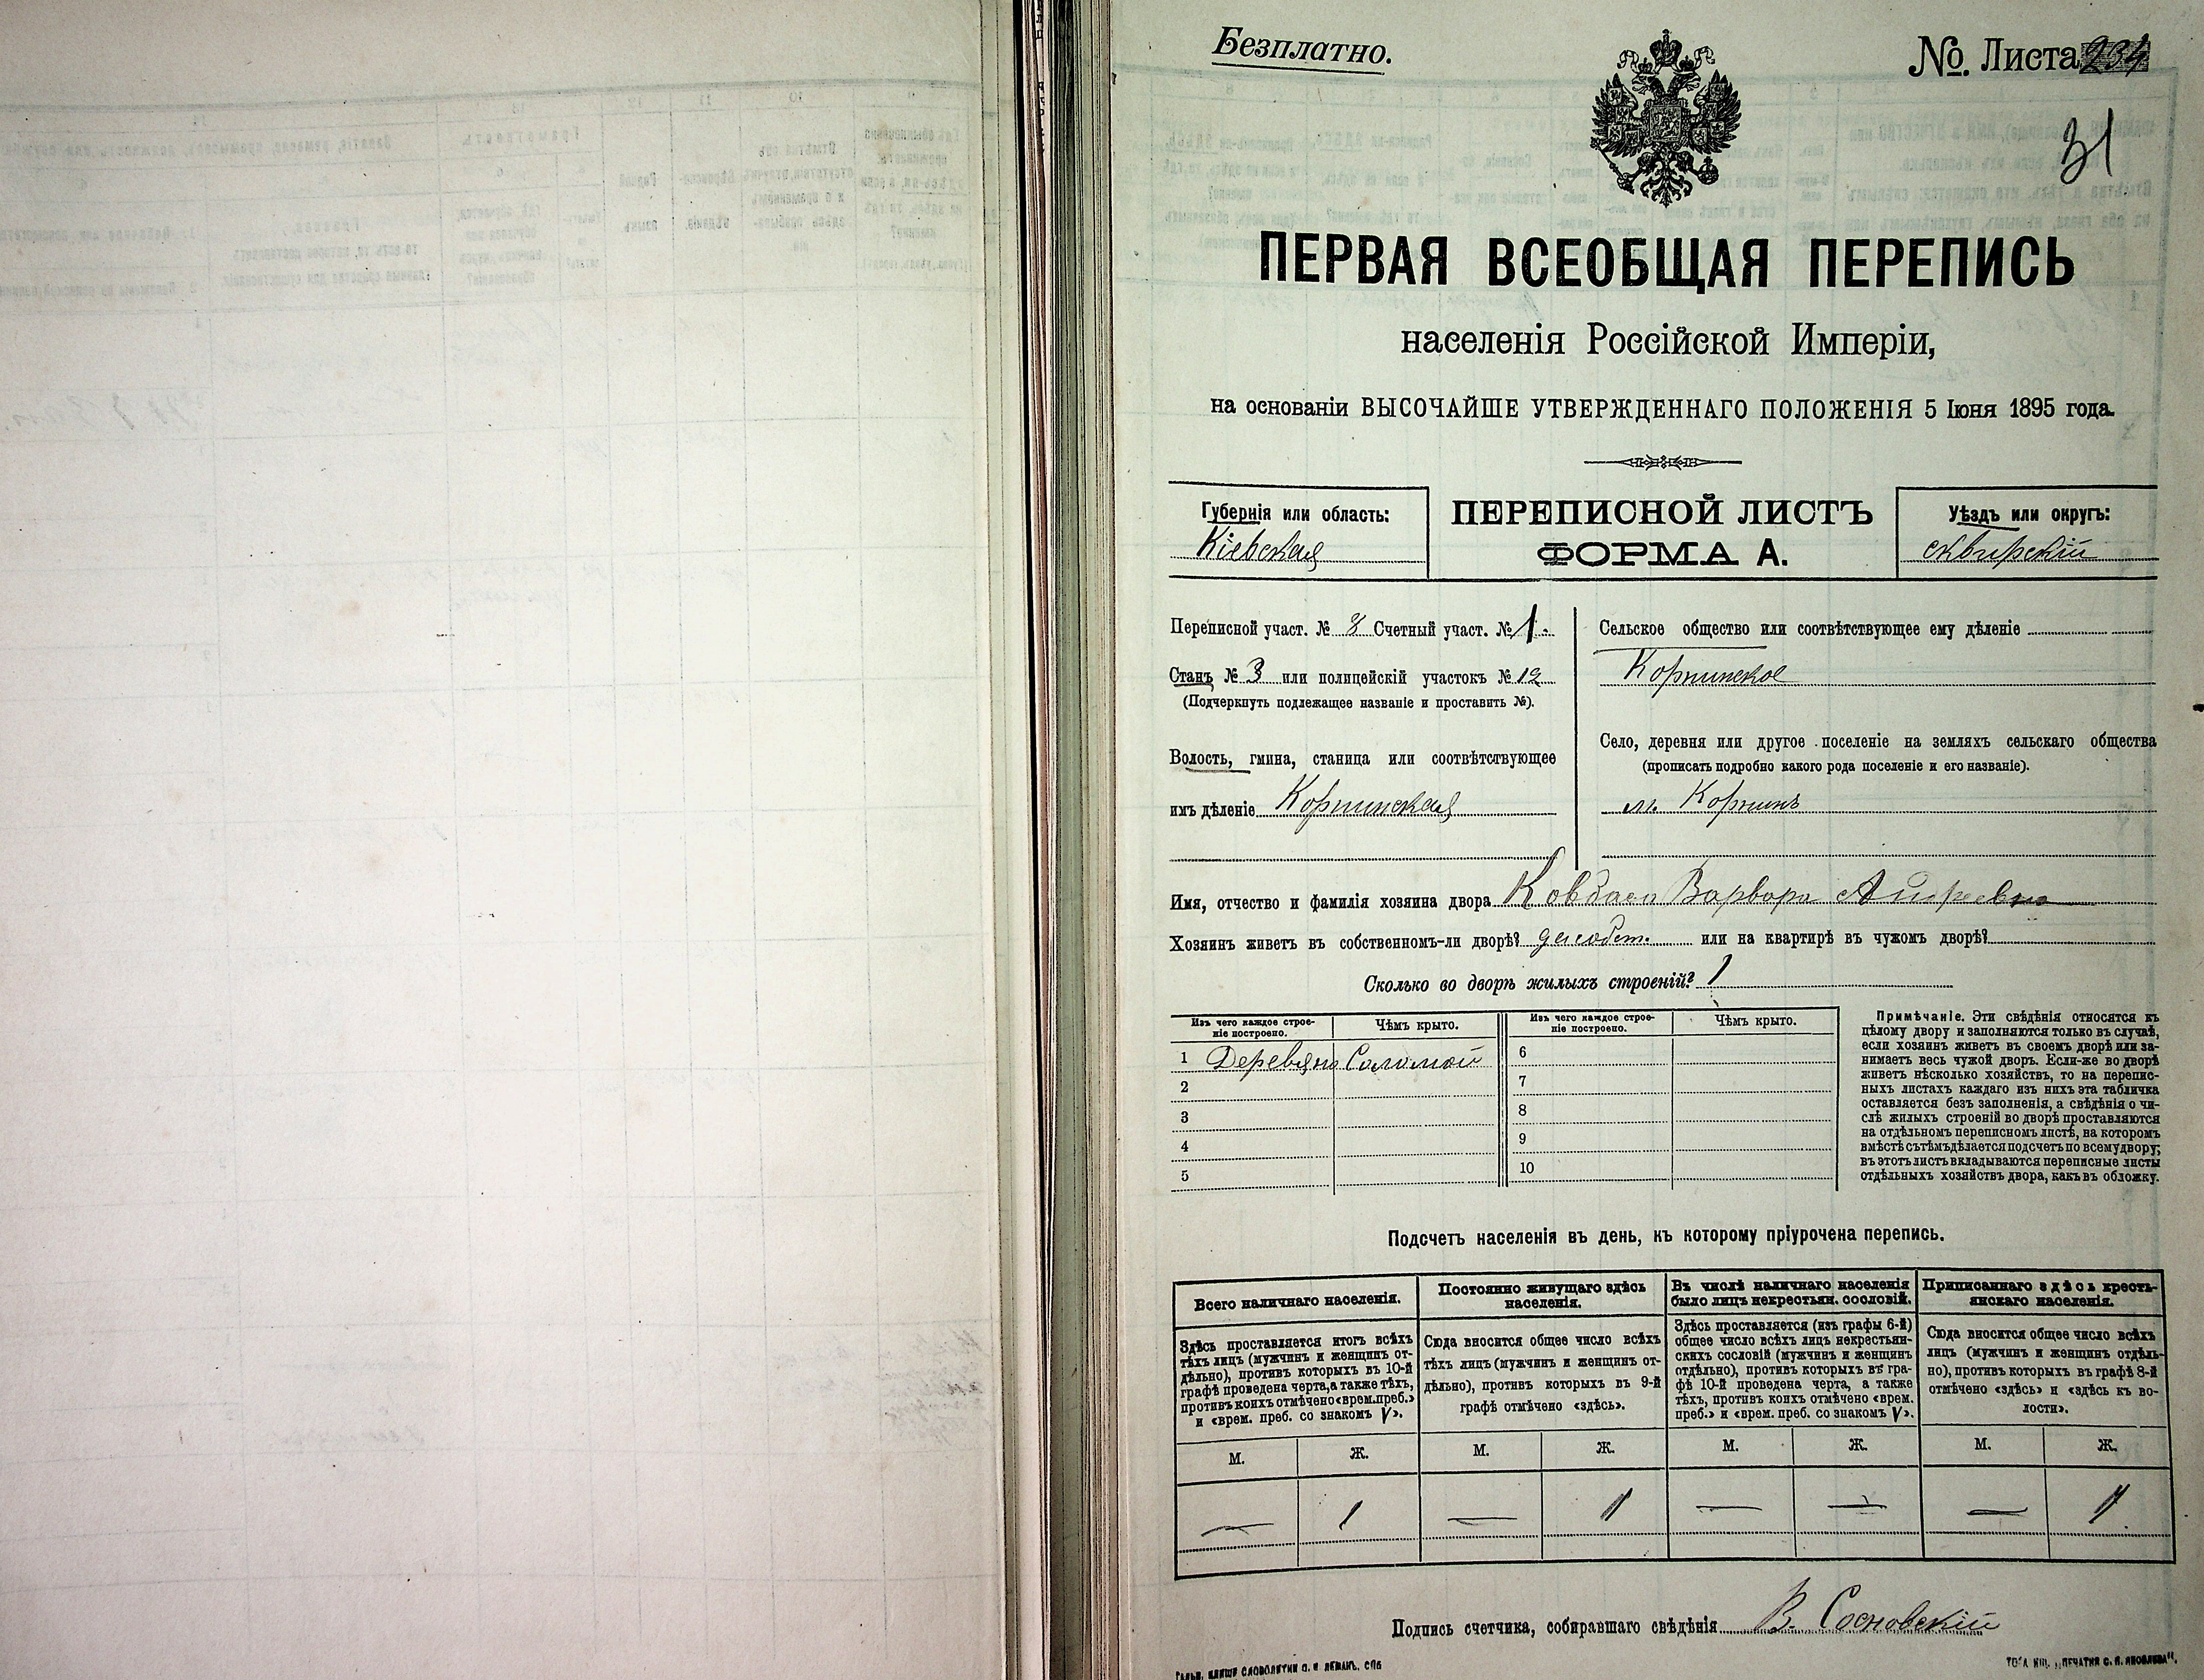 Безплатно.
№ Листа 234
31
ПЕРВАЯ ВСЕОБЩАЯ ПЕРЕПИСЬ
населенія Россійской Имперіи,
на основаніи ВЫСОЧАЙШЕ УТВЕРЖДЕННАГО ПОЛОЖЕНІЯ 5 Іюня 1895 года.
Губернія или область:
Кіевская
ПЕРЕПИСНОЙ ЛИСТЪ
ФОРМА А.
Уѣздъ или округъ:
сквирскій
Переписной участ. № 8 Счетный участ. № 1.
Станъ № 3 или полицейскій участокъ № 12
(Подчеркнуть подлежащее названіе и проставить №).
Волость, гмина, станица или соотвѣтствующее
имъ дѣленіе Корнинская
Сельское общество или соотвѣтствующее ему дѣленіе
Корнинское
Село, деревня или другое поселеніе на земляхъ сельскаго общества
(прописать подробно какого рода поселеніе и его названіе).
м. Корнинъ
Имя, отчество и фамилія хозяина двора Варвара
Хозяинъ живетъ въ собственномъ-ли дворѣ? или на квартирѣ въ чужомъ дворѣ?
Сколько во дворѣ жилыхъ строеній? 1
Изъ чего каждое строе-
ніе построено.
Чѣмъ крыто.
Изъ чего каждое строе-
ніе построено.
Чѣмъ крыто.
1 Деревяно Соломой
2
3
4
5
6
7
8
9
10
Примѣчаніе. Эти свѣдѣнія относятся къ
цѣлому двору и заполняются только въ случаѣ,
если хозяинъ живетъ въ своемъ дворѣ или за-
нимаетъ весь чужой дворъ. Если-же во дворѣ
живетъ нѣсколько хозяйствъ, то на перепис-
ныхъ листахъ каждаго изъ нихъ эта табличка
оставляется безъ заполненія, а свѣдѣнія о чи-
слѣ жилыхъ строеній во дворѣ проставляются
на отдѣльномъ переписномъ листѣ, на которомъ
вмѣстѣ съ тѣмъ дѣлается подсчетъ по всему двору;
въ этотъ листъ вкладываются переписные листы
отдѣльныхъ хозяйствъ двора, какъ въ обложку.
Подсчетъ населенія въ день, къ которому пріурочена перепись.
Всего наличнаго населенія.
Здѣсь проставляется итогъ всѣхъ
тѣхъ лицъ (мужчинъ и женщинъ от-
дѣльно), противъ которыхъ въ 10-й
графѣ проведена черта, а также тѣхъ,
противъ коихъ отмѣчено «врем. преб.»
и «врем. преб. со знакомъ V».
Постоянно живущаго здѣсь
населенія.
Сюда вносится общее число всѣхъ
тѣхъ лицъ (мужчинъ и женщинъ от-
дѣльно), противъ которыхъ въ 9-й
графѣ отмѣчено «здѣсь».
Въ числѣ наличнаго населенія
было лицъ некрестьян. сословій.
Здѣсь проставляется (изъ графы 6-й)
общее число всѣхъ лицъ некрестьян-
скихъ сословій (мужчинъ и женщинъ
отдѣльно), противъ которыхъ въ гра-
фѣ 10-й проведена черта, а также
тѣхъ, противъ коихъ отмѣчено «врем.
преб.» и «врем. преб. со знакомъ V».
Приписаннаго здѣсь кресть-
янскаго населенія.
Сюда вносится общее число всѣхъ
лицъ (мужчинъ и женщинъ отдѣль-
но), противъ которыхъ въ графѣ 8-й
отмѣчено «здѣсь» и «здѣсь къ во-
лости».
М. Ж. М. Ж. М. Ж. М. Ж.
— 1 — 1 — — — 1
Подпись счетчика, собиравшаго свѣдѣнія В. Сосновскій